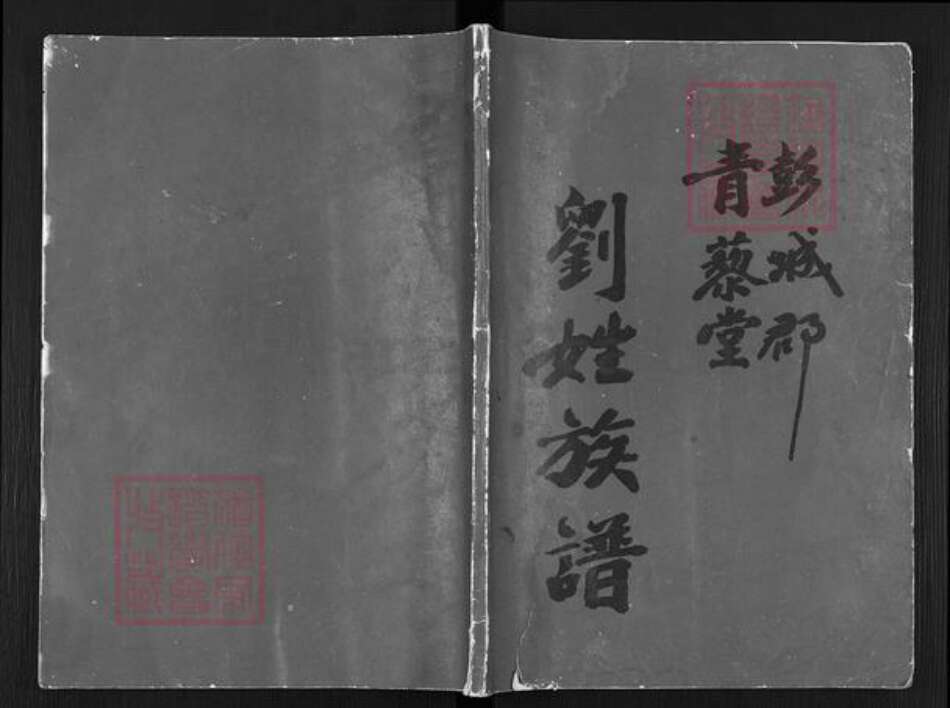 彭城郡
青藜堂
劉姓族譜